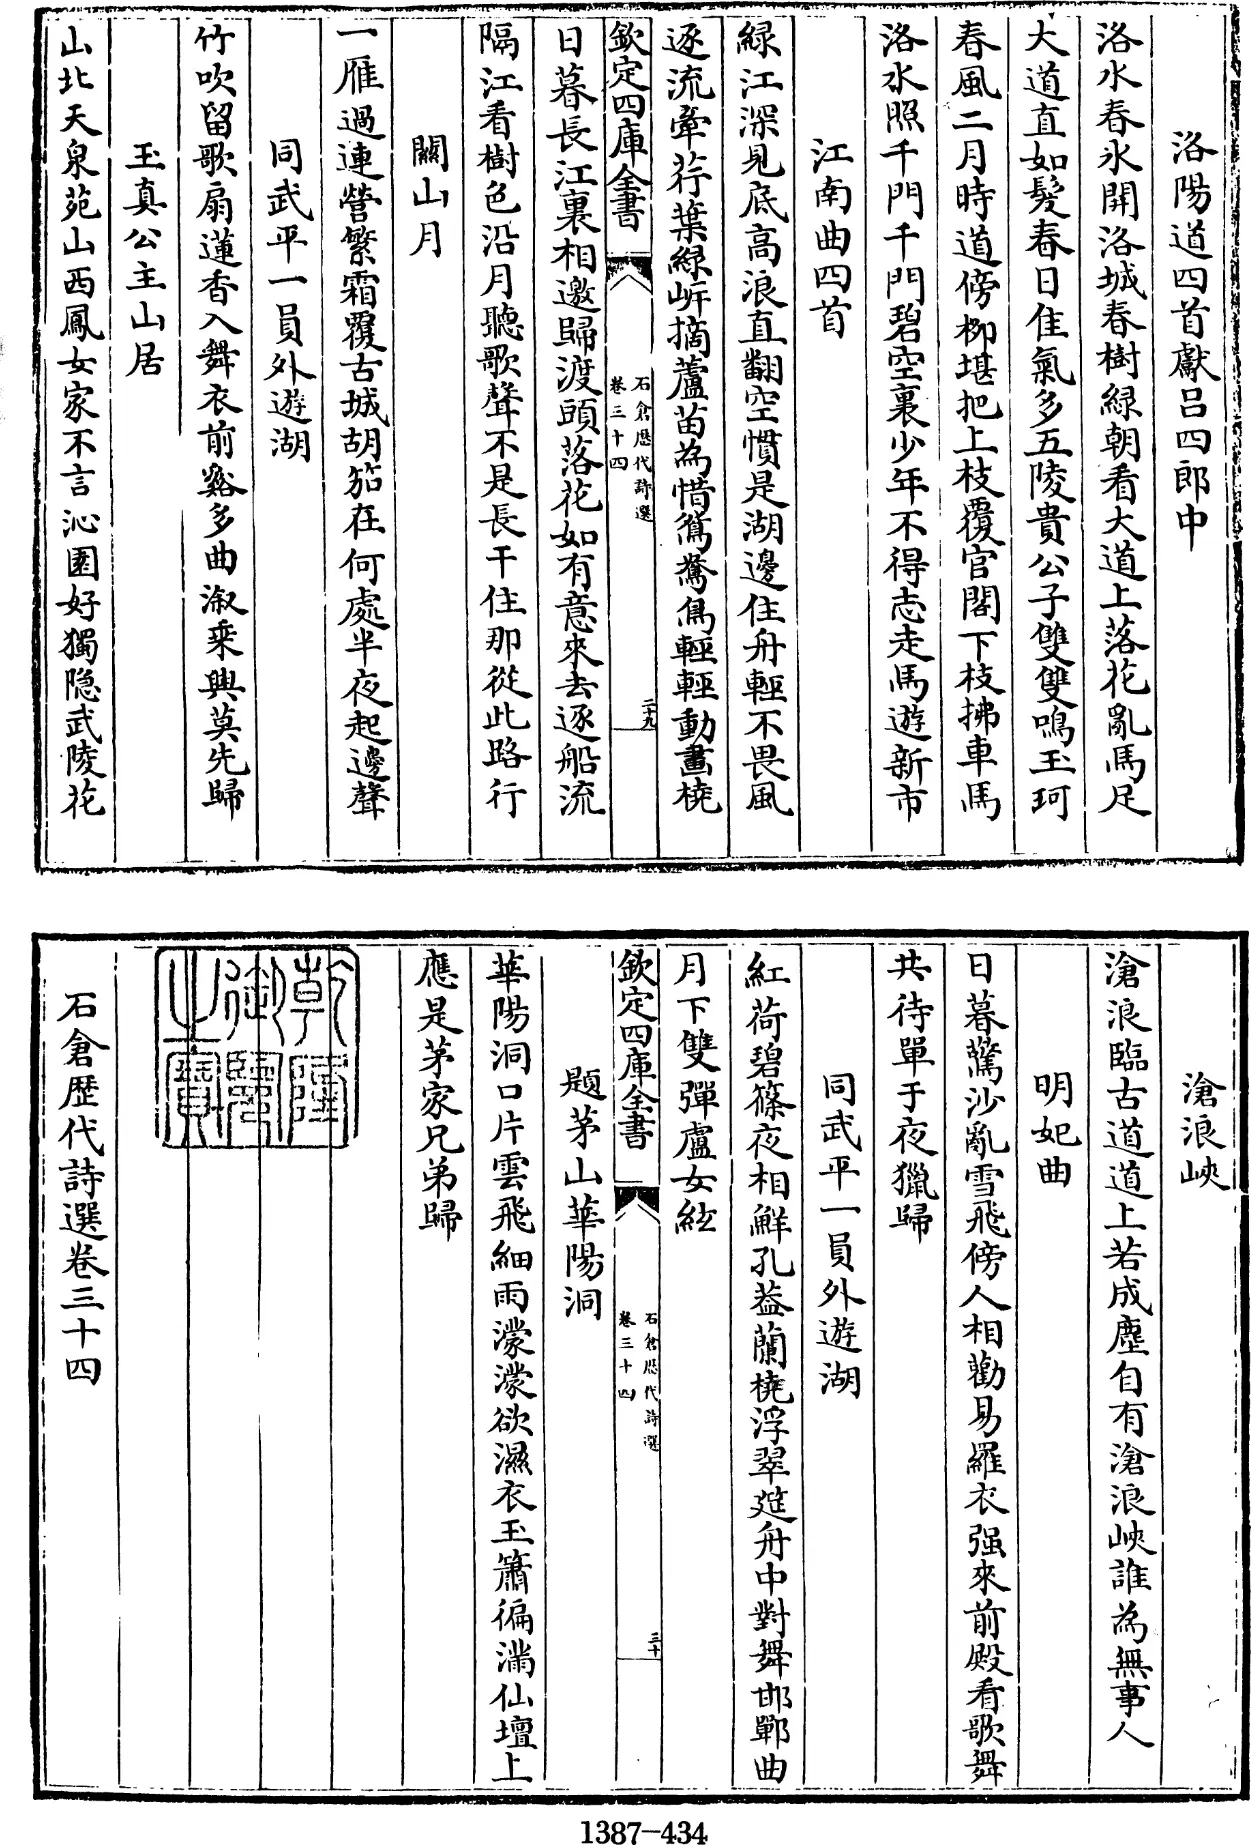 洛陽道四首獻呂四郎中
洛水春氷開洛城春樹緑朝看大道上落花亂馬足
大道直如髮春日佳氣多五陵貴公子雙雙鳴玉珂
春風二月時道傍柳堪把上枝覆官閣下枝拂車馬
洛水照千門千門碧空裏少年不得志走馬遊新市
江南曲四首
緑江深見底高浪直翻空慣是湖邊住舟輕不畏風
逐流牽荇葉緑岍摘蘆苗為惜鴛鴦鳥輕輕動畫橈
欽定四庫全書
石倉歴代詩選
卷三十四
二十九
日暮長江裏相邀歸渡頭落花如有意來去逐船流
隔江看樹色沿月聽歌聲不是長干住那從此路行
關山月
一雁過連營繁霜覆古城胡笳在何處半夜起邊聲
同武平一員外遊湖
竹吹留歌扇蓮香入舞衣前谿多曲溆乘興莫先歸
玉真公主山居
山北天泉苑山西鳳女家不言沁園好獨隠武陵花
滄浪峽
滄浪臨古道道上若成塵自有滄浪峽誰為無事人
明妃曲
日暮驚沙亂雪飛傍人相勸易羅衣强來前殿看歌舞
共待單于夜獵歸
同武平一員外遊湖
紅荷碧篠夜相鮮孔葢蘭橈浮翠筵舟中對舞邯鄲曲
月下雙彈盧女絃
欽定四庫全書
石倉歴代詩選
卷三十四
三十
題茅山華陽洞
華陽洞口片雲飛細雨濛濛欲濕衣玉簫徧滿仙壇上
應是茅家兄弟歸
乾隆
御覽
之寳
石倉歴代詩選卷三十四
1387-434